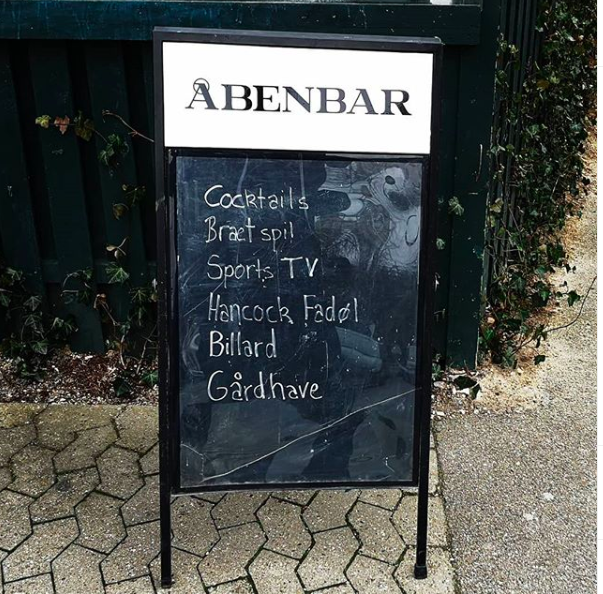 ÅBENBAR
Cocktails
Bræt spil
Sports TV
Hancock Fadøl
Billard
Gårdhave